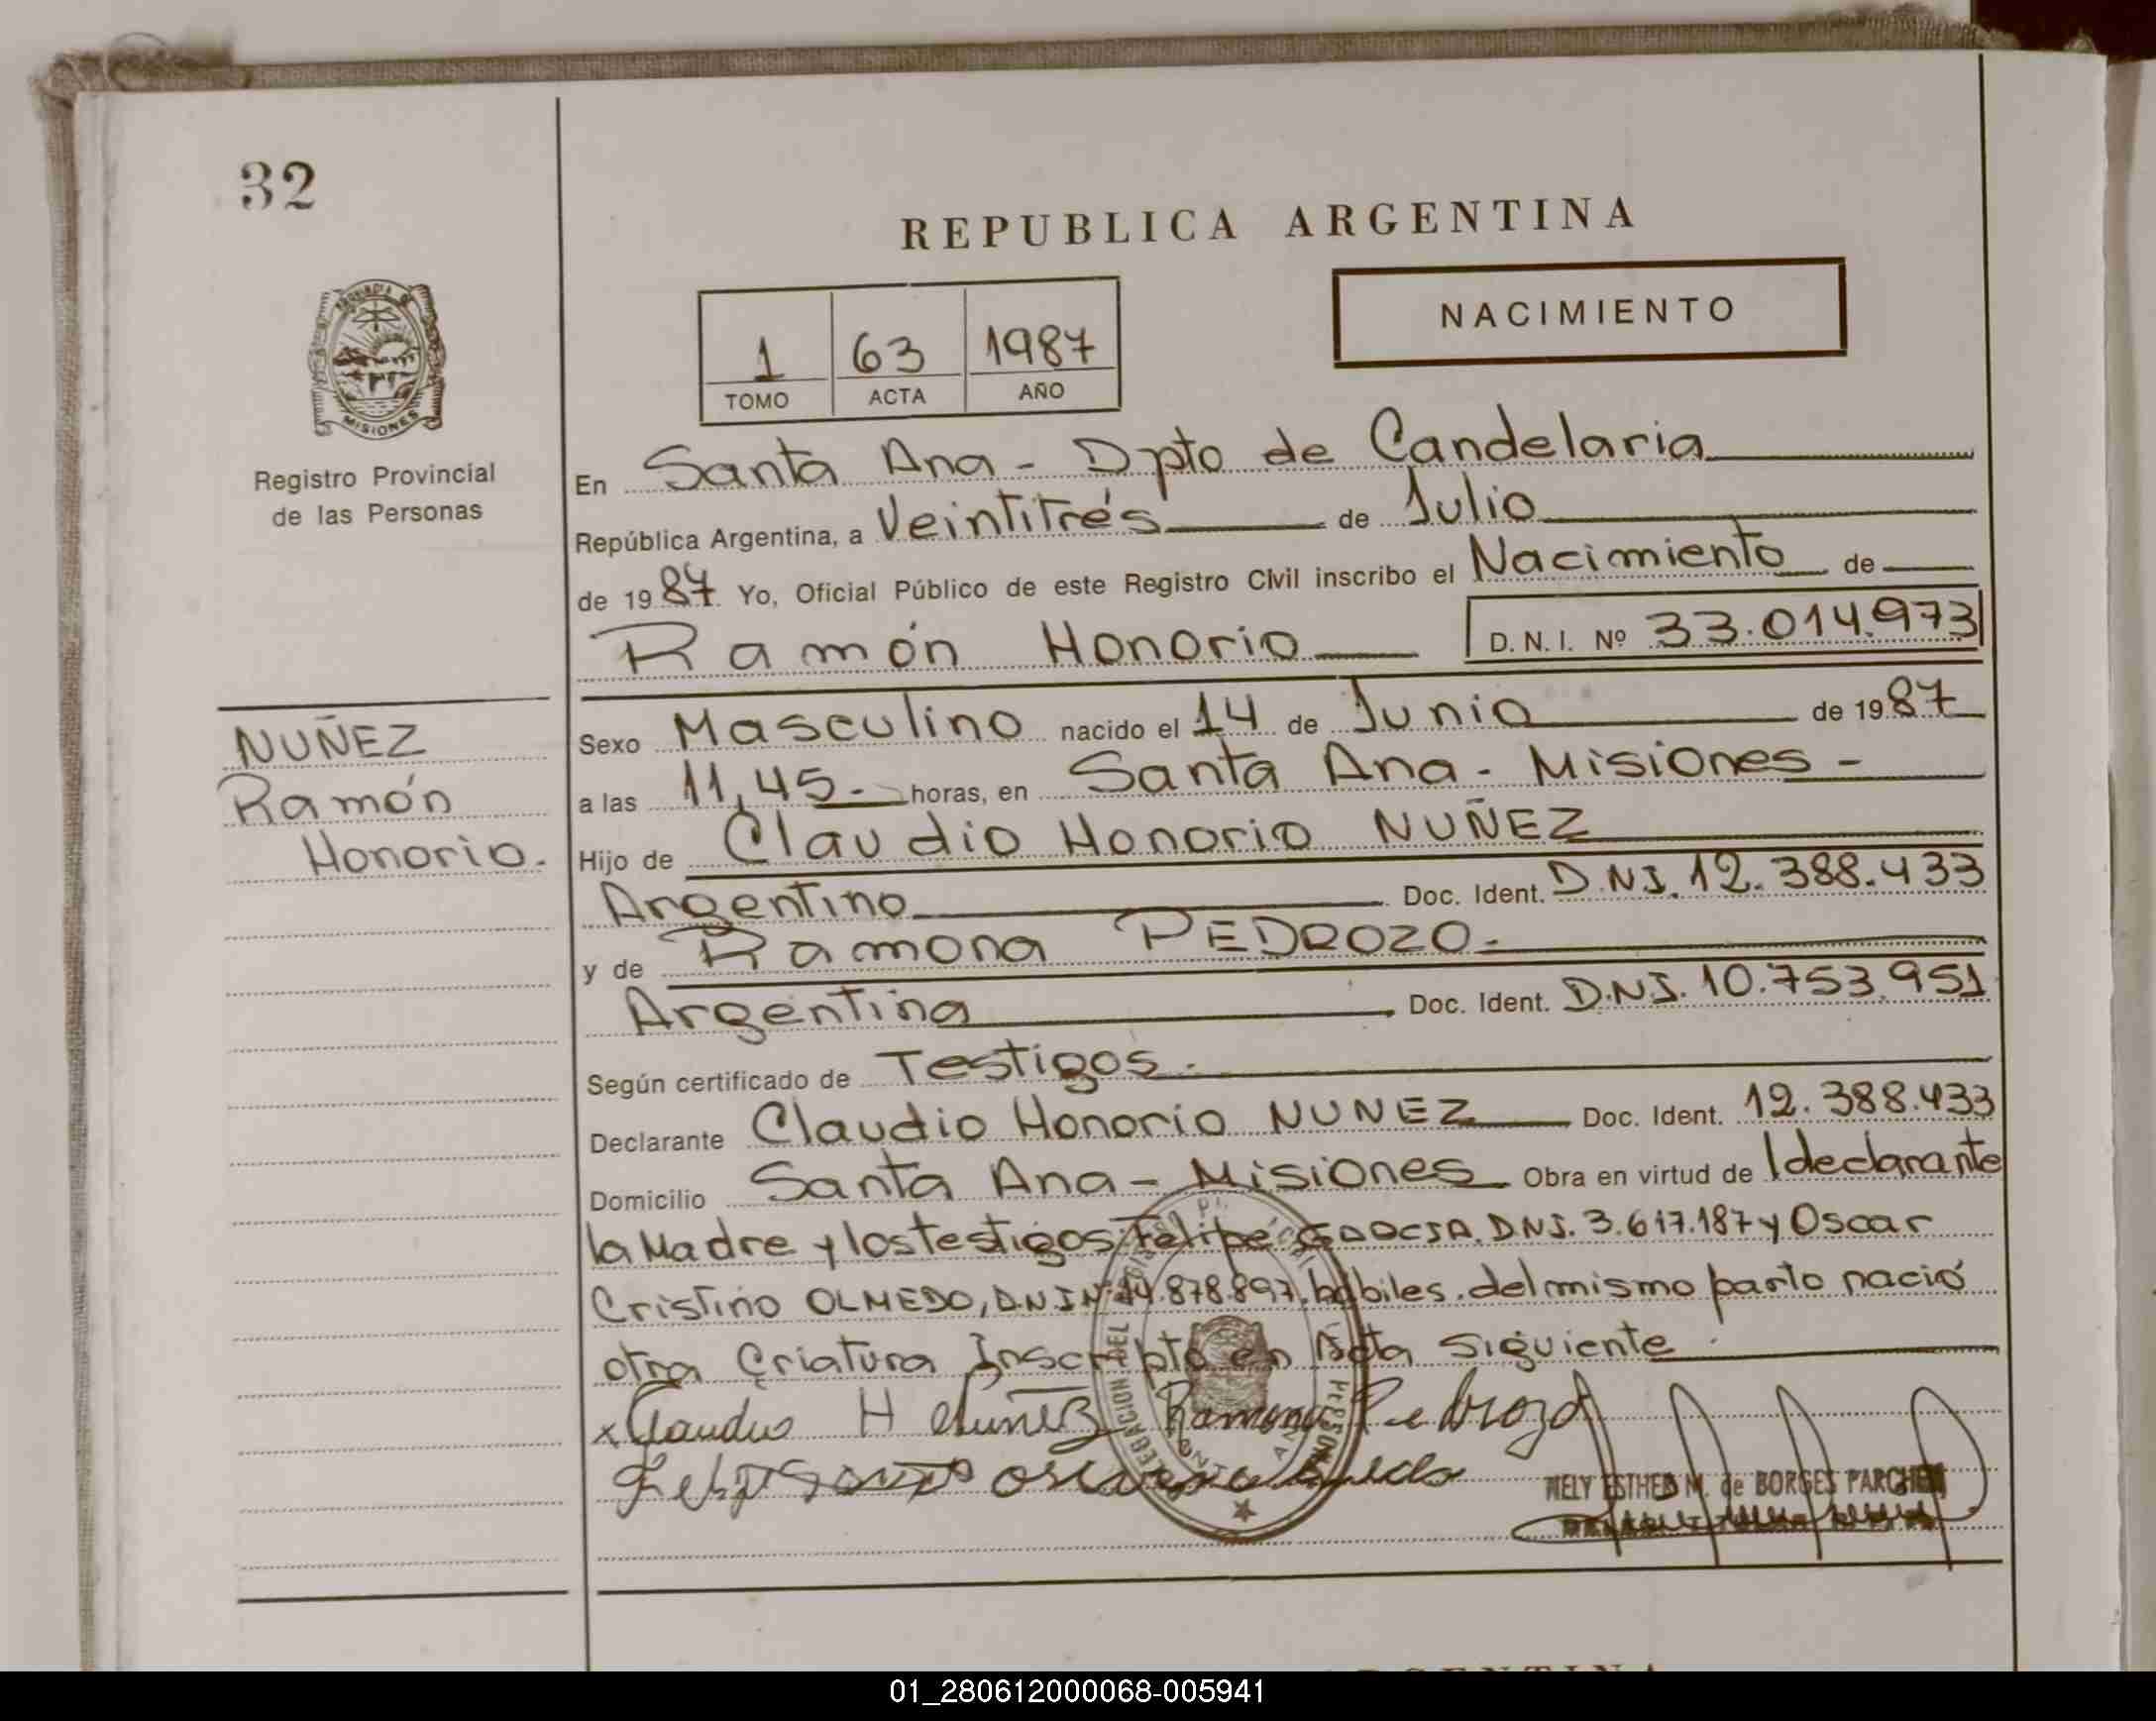 32
REPUBLICA ARGENTINA
NACIMIENTO
1 63 1987
TOMO ACTA AÑO
MISIONES
Registro Provincial
de las Personas
En Santa Ana - Dpto de Candelaria
República Argentina, a Veintitrés de Julio
de 1987 Yo, Oficial Público de este Registro Civil inscribo el Nacimiento de
Ramón Honorio D. N. I. Nº 33.014.973
NUÑEZ
Ramón
Honorio.
Sexo Masculino nacido el 14 de Junio de 1987
a las 11,45.- horas, en Santa Ana - Misiones -
Hijo de Claudio Honorio NUÑEZ
Argentino Doc. Ident. D.N.I. 12.388.433
y de Ramona PEDROZO.-
Argentina Doc. Ident. D.N.I. 10.753.951
Según certificado de Testigos.
Declarante Claudio Honorio NUNEZ Doc. Ident. 12.388.433
Domicilio Santa Ana - Misiones Obra en virtud de l declarante
la Madre y los testigos Felipe GARCIA. DNI. 3.617.187 y Oscar
Cristino OLMEDO, D.N.I Nº 14.878.897, hábiles. del mismo parto nació
otra Criatura Inscripto en Acta Siguiente.
x Claudio H Nuñez Ramona Pedrozo
NELY ESTHER M. de BORGES PARCHEN
01_280612000068-005941